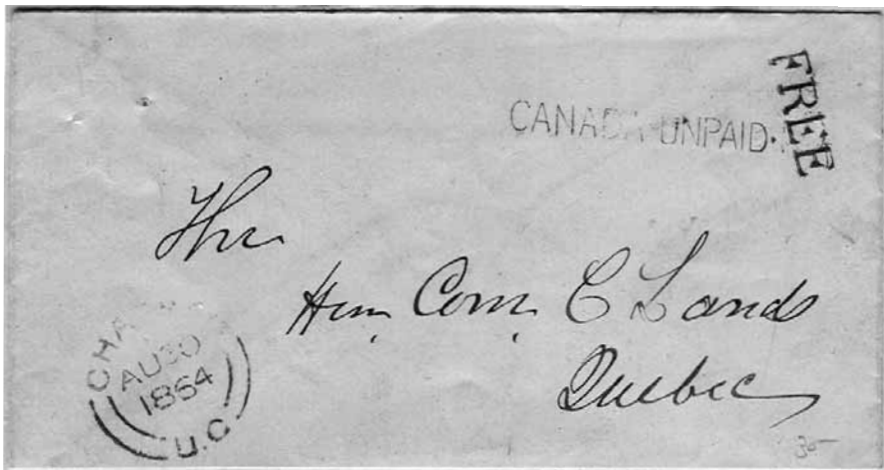 FREE
CANADA UNPAID.
The
Hon. Com. C Lands
Quebec
CHA
AU 30
1864
U.C.
30